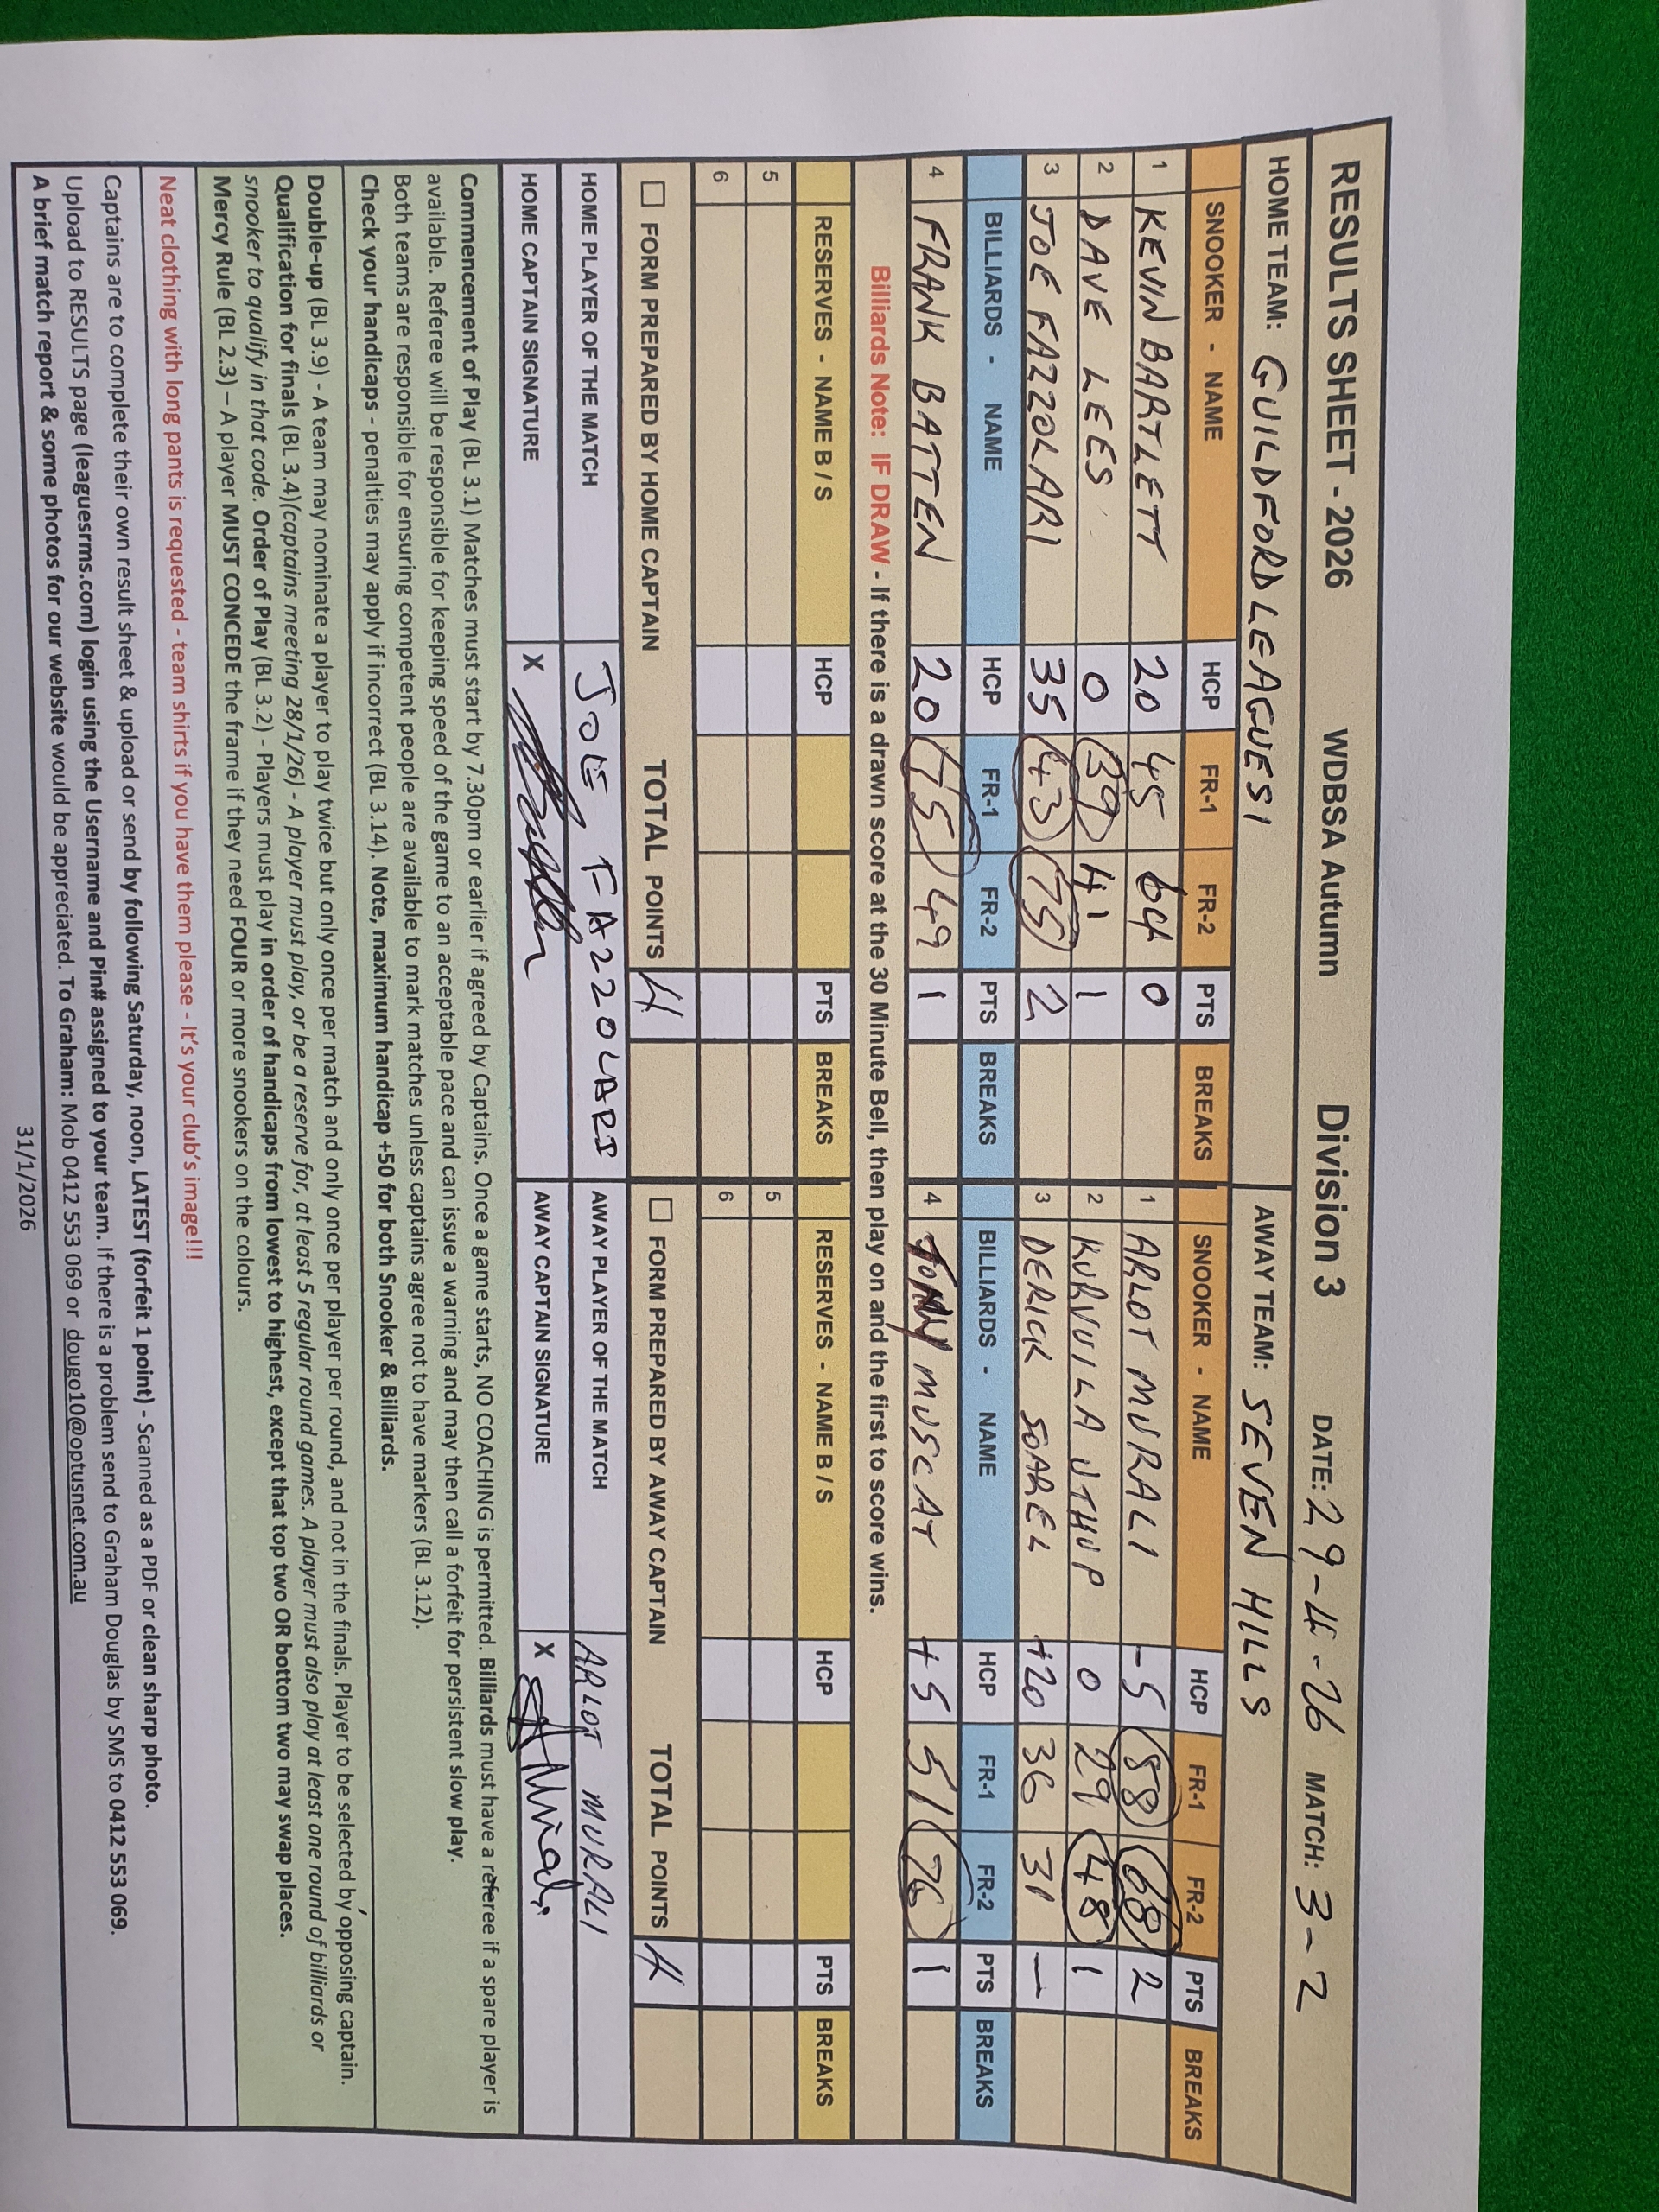 RESULTS SHEET - 2026 WDBSA Autumn Division 3 DATE: 29-4-26 MATCH: 3-2
HOME TEAM: GUILDFORD LEAGUES 1 AWAY TEAM: SEVEN HILLS
SNOOKER - NAME HCP FR-1 FR-2 PTS BREAKS SNOOKER - NAME HCP FR-1 FR-2 PTS BREAKS
1 KEVIN BARTLETT 20 45 64 0 1 ARLOT MURALI -5 88 68 2
2 DAVE LEES 0 39 41 1 2 KURVUILA JTHUP 0 29 48 1
3 JOE FAZZOLARI 35 43 75 2 3 DERICK SOAREL +20 36 31 —
BILLIARDS - NAME HCP FR-1 FR-2 PTS BREAKS BILLIARDS - NAME HCP FR-1 FR-2 PTS BREAKS
4 FRANK BATTEN 20 75 49 1 4 TONY MUSCAT +5 51 76 1
Billiards Note: IF DRAW - If there is a drawn score at the 30 Minute Bell, then play on and the first to score wins.
RESERVES - NAME B / S HCP PTS BREAKS RESERVES - NAME B / S HCP PTS BREAKS
5 5
6 6
FORM PREPARED BY HOME CAPTAIN TOTAL POINTS 4 FORM PREPARED BY AWAY CAPTAIN TOTAL POINTS 4
HOME PLAYER OF THE MATCH JOE FAZZOLARI AWAY PLAYER OF THE MATCH ARLOT MURALI
HOME CAPTAIN SIGNATURE X AWAY CAPTAIN SIGNATURE X
Commencement of Play (BL 3.1) Matches must start by 7.30pm or earlier if agreed by Captains. Once a game starts, NO COACHING is permitted. Billiards must have a referee if a spare player is
available. Referee will be responsible for keeping speed of the game to an acceptable pace and can issue a warning and may then call a forfeit for persistent slow play.
Both teams are responsible for ensuring competent people are available to mark matches unless captains agree not to have markers (BL 3.12).
Check your handicaps - penalties may apply if incorrect (BL 3.14). Note, maximum handicap +50 for both Snooker & Billiards.
Double-up (BL 3.9) - A team may nominate a player to play twice but only once per match and only once per player per round, and not in the finals. Player to be selected by opposing captain.
Qualification for finals (BL 3.4)(captains meeting 28/1/26) - A player must play, or be a reserve for, at least 5 regular round games. A player must also play at least one round of billiards or
snooker to qualify in that code. Order of Play (BL 3.2) - Players must play in order of handicaps from lowest to highest, except that top two OR bottom two may swap places.
Mercy Rule (BL 2.3) – A player MUST CONCEDE the frame if they need FOUR or more snookers on the colours.
Neat clothing with long pants is requested - team shirts if you have them please - It's your club's image!!!
Captains are to complete their own result sheet & upload or send by following Saturday, noon, LATEST (forfeit 1 point) - Scanned as a PDF or clean sharp photo.
Upload to RESULTS page (leaguesrms.com) login using the Username and Pin# assigned to your team. If there is a problem send to Graham Douglas by SMS to 0412 553 069.
A brief match report & some photos for our website would be appreciated. To Graham: Mob 0412 553 069 or dougo10@optusnet.com.au
31/1/2026